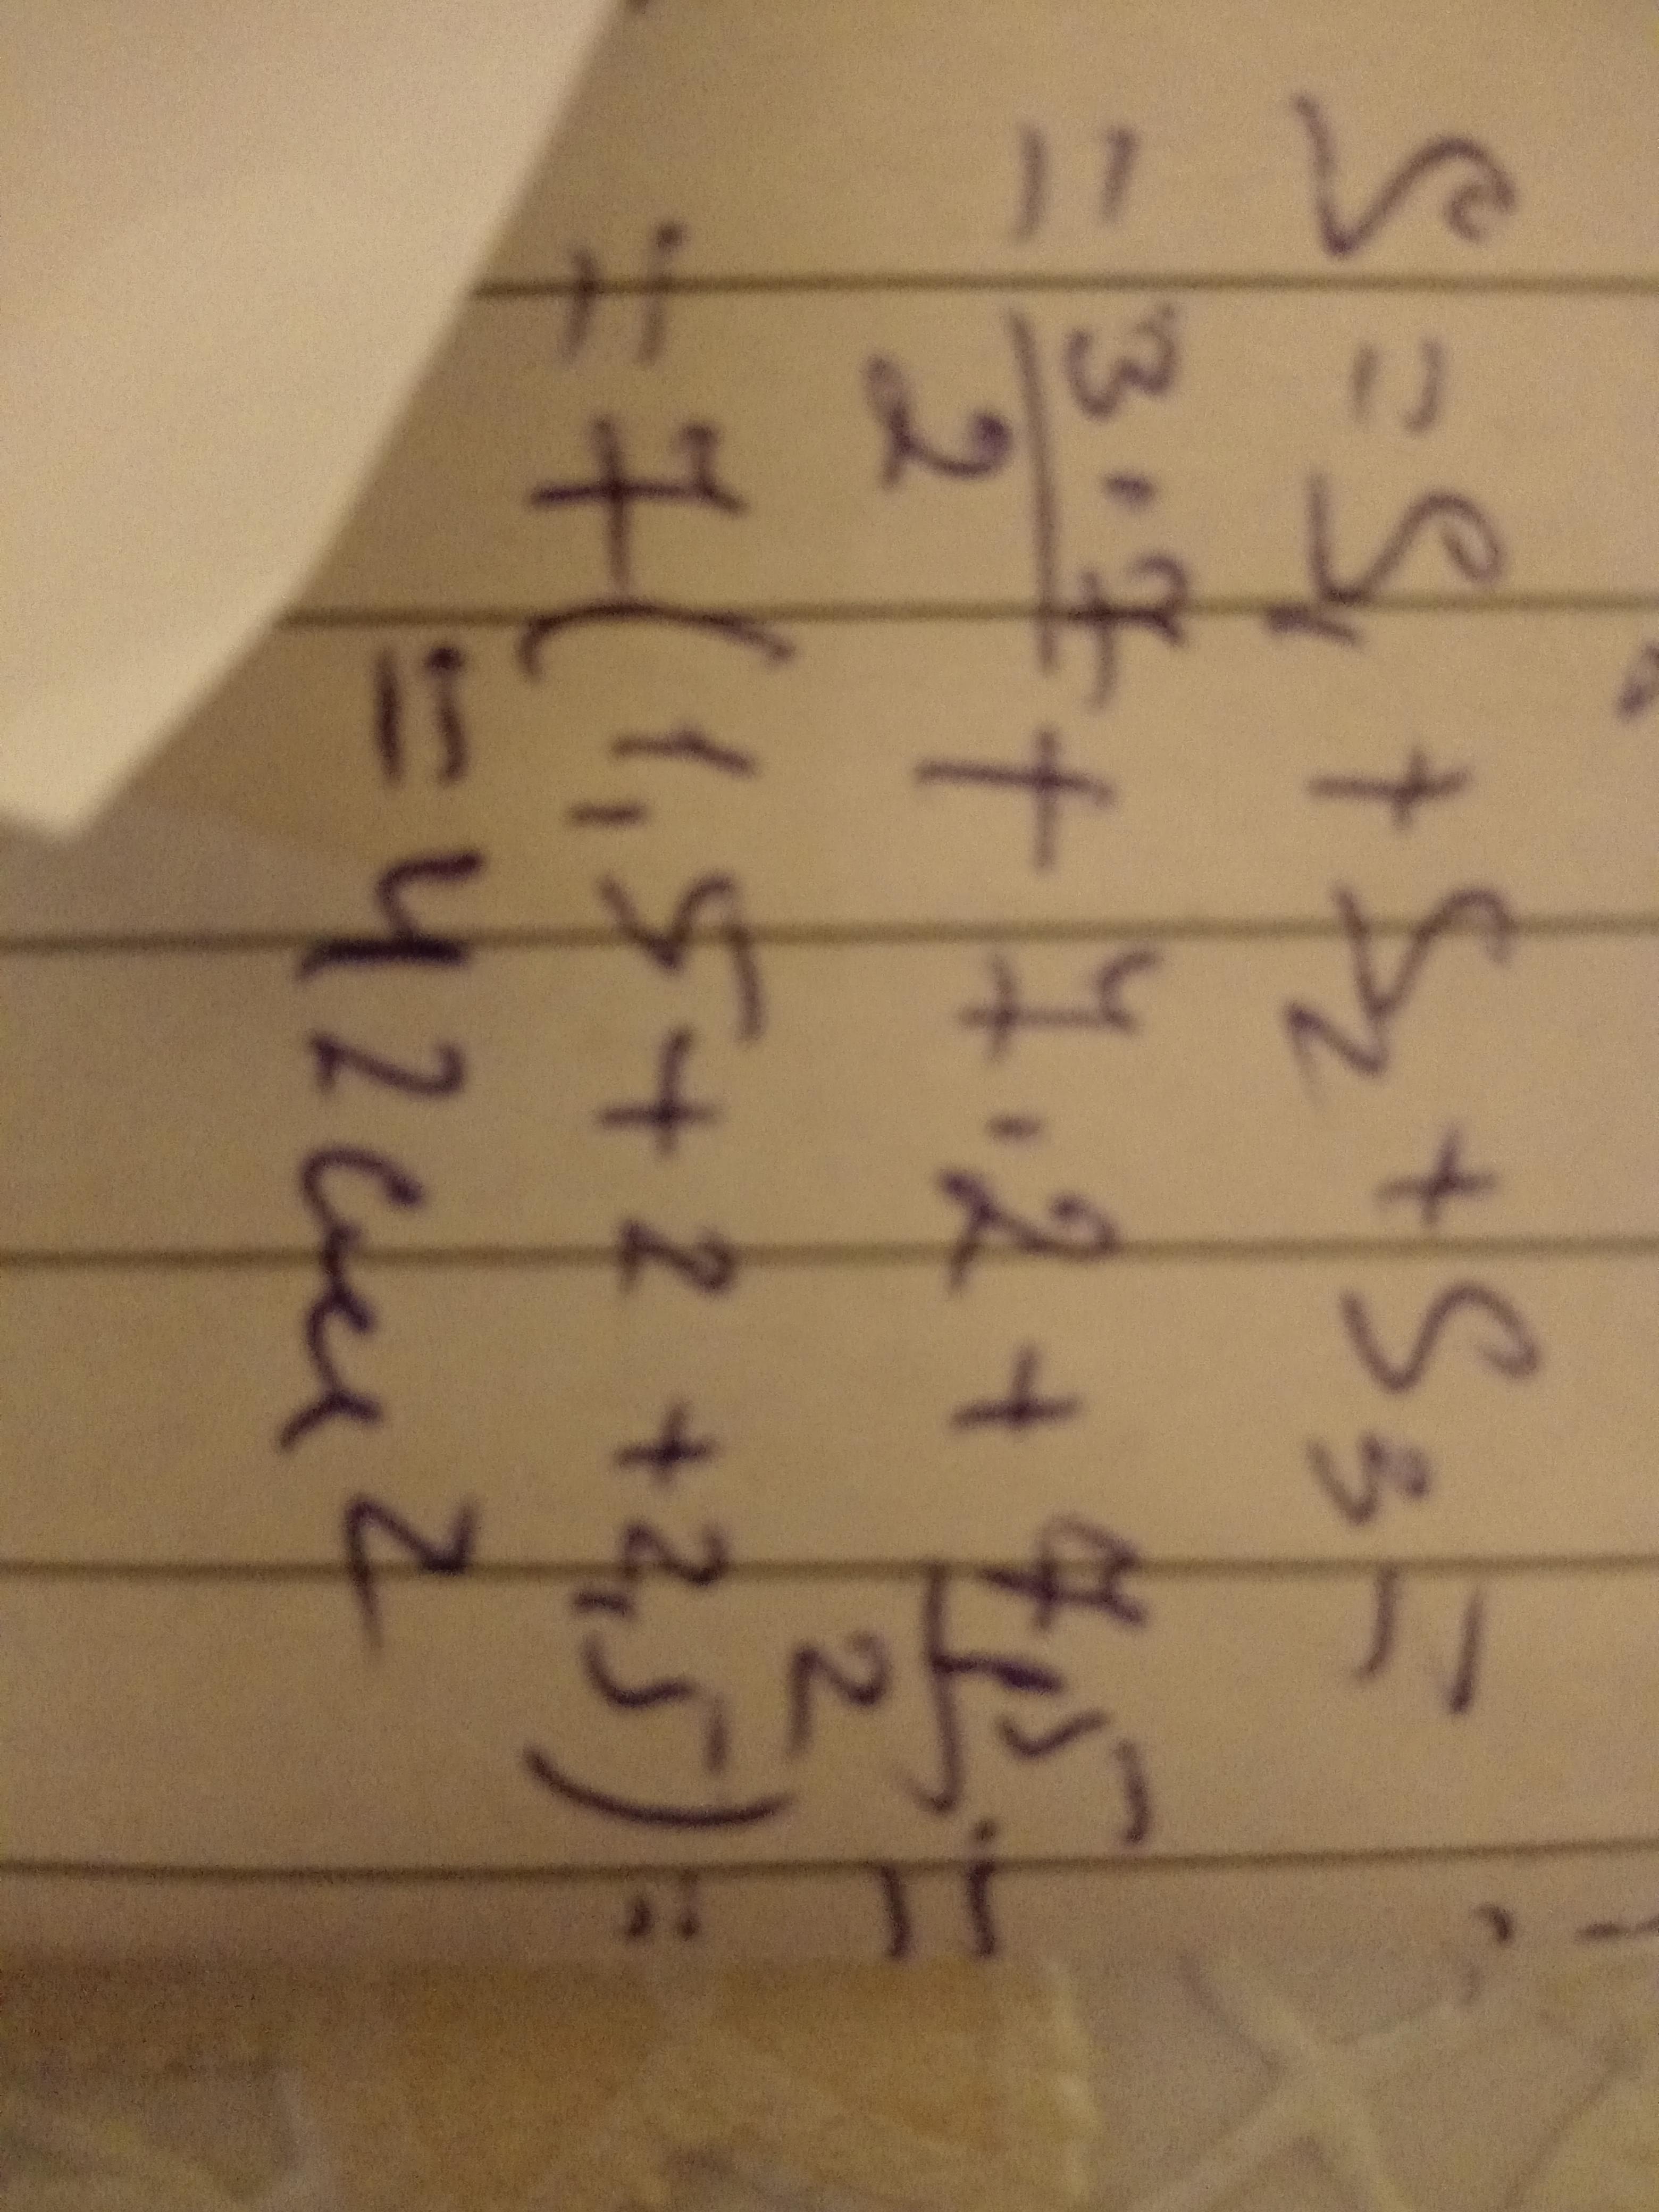 S = S1 + S2 + S3 =
= 3·7/2 + 7·2 + 7·5/2 =
= 7(1,5 + 2 + 2,5) =
= 42 см2